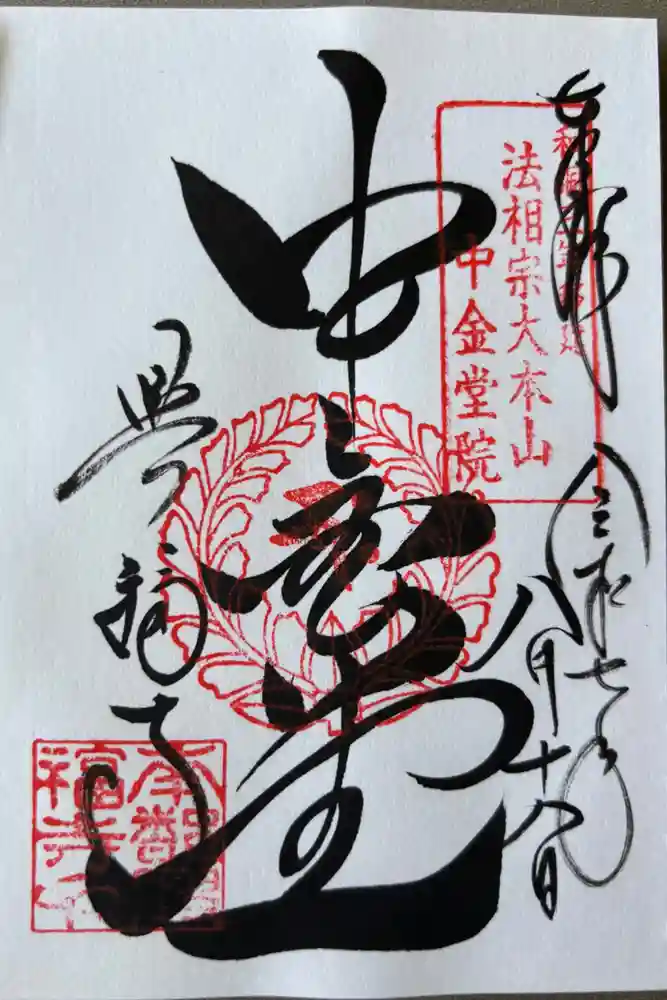 奉拝
和銅三年創建
法相宗大本山
中金堂院
令和七年
八月十八日
中金堂
興福寺